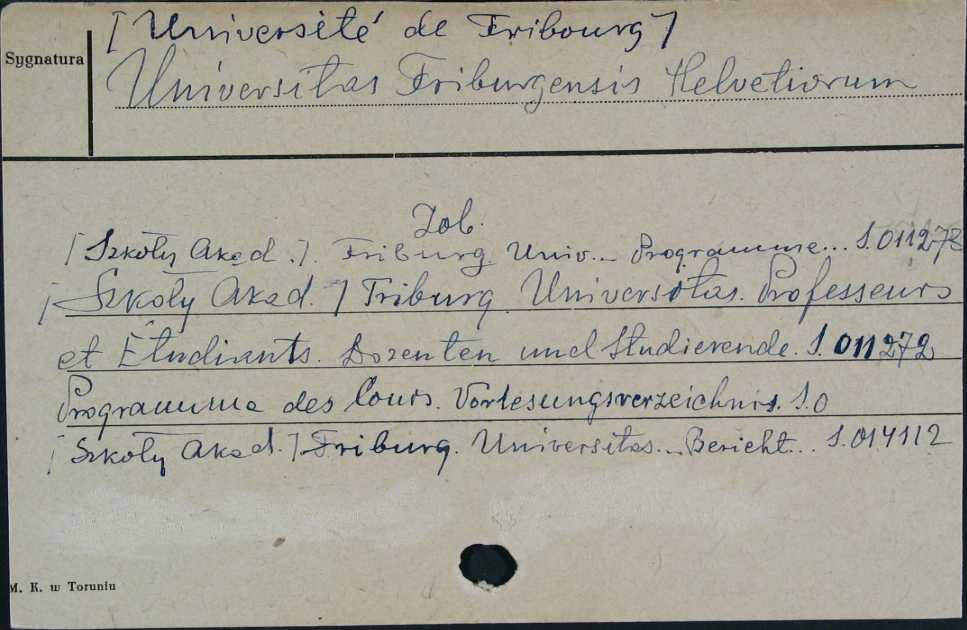 [Université de Fribourg]
Sygnatura
Universitas Friburgensis Helvetiorum
Zob.
[Szkoły Akad.]. Friburg. Univ... Programme... S.011278
[Szkoły Akad.] Friburg. Universitas. Professeurs
et Étudiants. Dozenten und Studierende. S.011272
Programme des Cours. Vorlesungsverzeichnis. S.0
[Szkoły Akad.] Friburg. Universitas... Bericht... S.014112
M. K. w Toruniu